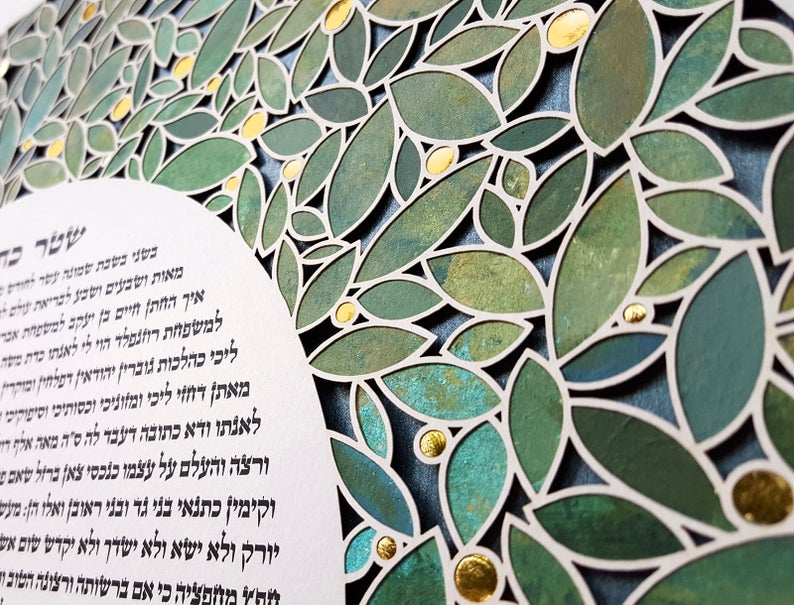 שטר כת
בשני בשבת שמונה עשר לחודש
מאות ושבעים ושבע לבריאת עולם
איך דחתן חיים בן יעקב למשפחת
למשפחת רוזנפלד הוי לי לאנתו כדת משה
ליכי כהלכות גוברין יהודאין דפלחין ומוקרין
מאתן דחזי ליכי ומזוניכי וכסותיכי וסיפוקיכי
לאנתו ודא כתובה דעבד לה ס"ה מאה אלף
ורצה והעלם על עצמו כנכסי צאן ברזל שאם
וקימין כתנאי בני גד ובני ראובן ואלו הן: מעש
יורק ולא ישא ולא ישדך ולא יקדש שום אש
חפץ מחפציה כי אם ברשותה ורצונה הטוב